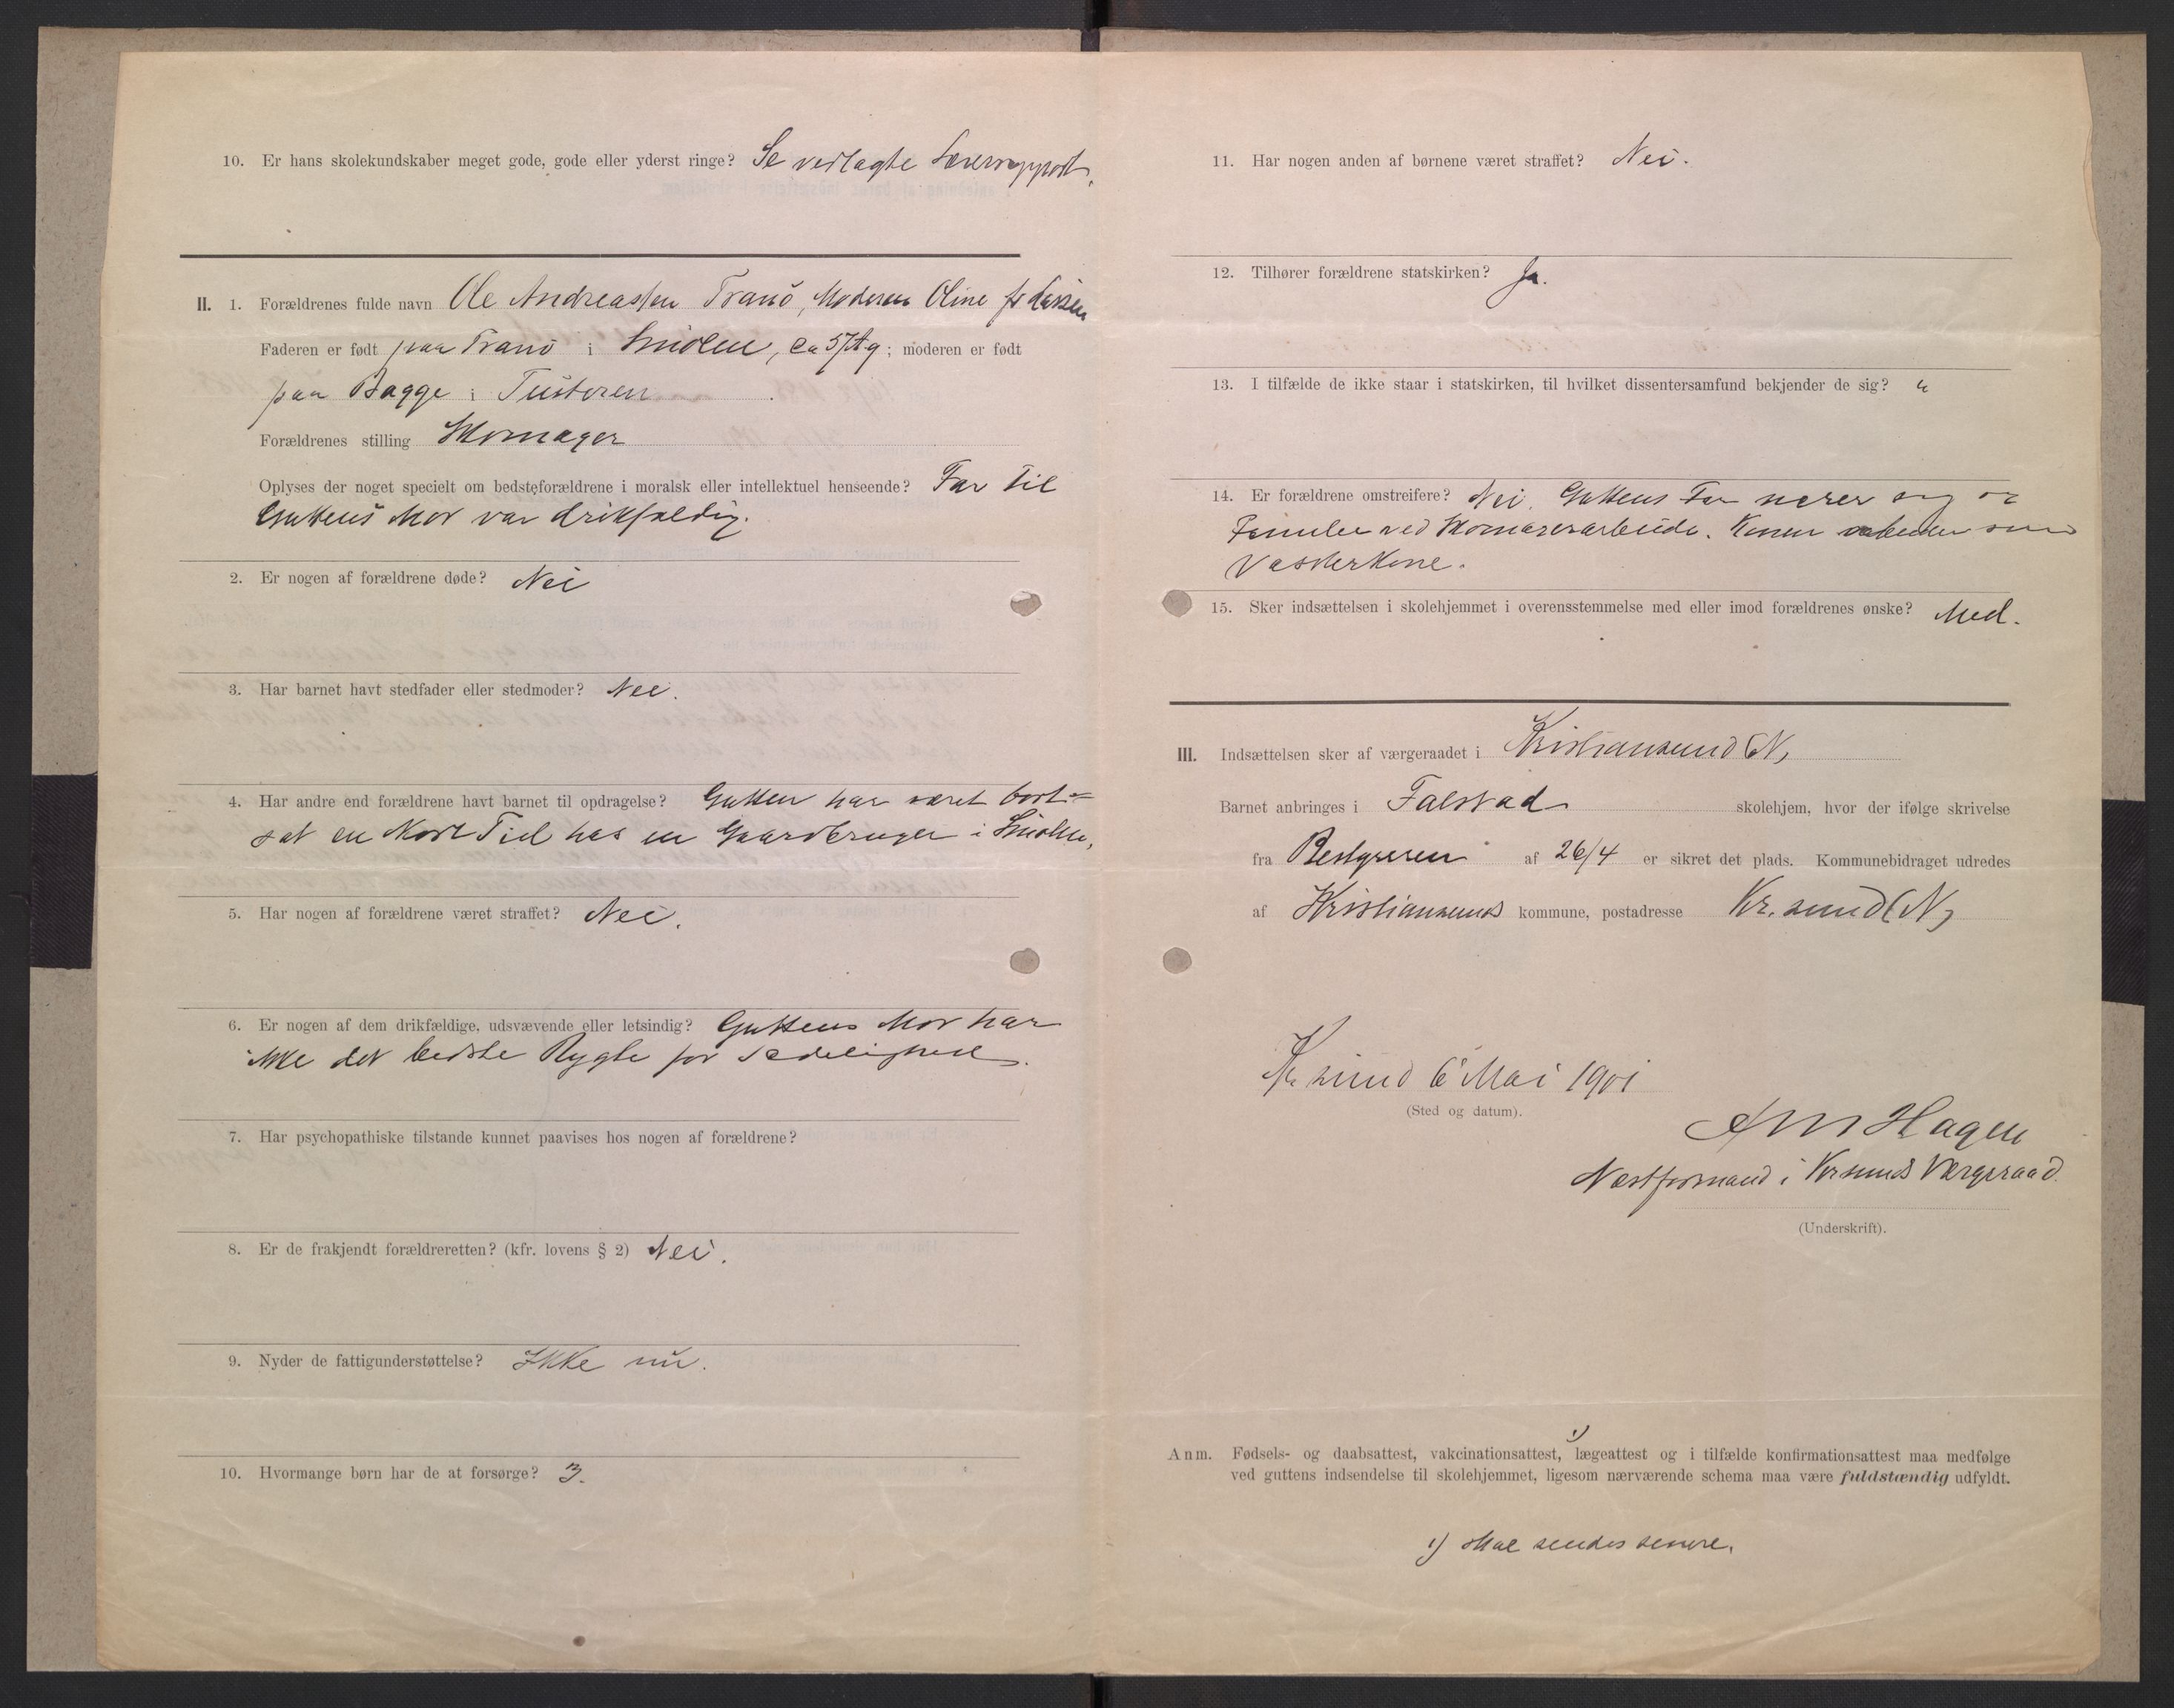 10. Er hans skolekundskaber meget gode, gode eller yderst ringe? Se vedlagte Lærerrapport.
II. 1. Forældrenes fulde navn Ole Andreassen Tranö, Moderen Oline f. Larsen
Faderen er født paa Tranö i Smölen, ca ; moderen er født
paa Bagge i Tusteren
Forældrenes stilling Skomager
Oplyses der noget specielt om bedsteforældrene i moralsk eller intellektuel henseende? Far til
Guttens Mor var drikfældig.
2. Er nogen af forældrene døde? Nei
3. Har barnet havt stedfader eller stedmoder? Nei.
4. Har andre end forældrene havt barnet til opdragelse? Gutten har været bort=
sat en Kort Tid hos en Gaardbruger i Smölen.
5. Har nogen af forældrene været straffet? Nei.
6. Er nogen af dem drikfældige, udsvævende eller letsindig? Guttens Mor har
ikke det bedste Rygte for Sædelighed.
7. Har psychopathiske tilstande kunnet paavises hos nogen af forældrene?
8. Er de frakjendt forældreretten? (kfr. lovens § 2) Nei.
9. Nyder de fattigunderstøttelse? Ikke nu.
10. Hvormange børn har de at forsørge? 3.
11. Har nogen anden af børnene været straffet? Nei.
12. Tilhører forældrene statskirken? Ja.
13. I tilfælde de ikke staar i statskirken, til hvilket dissentersamfund bekjender de sig? "
14. Er forældrene omstreifere? Nei. Guttens Far nærer sig og
Familie ved Skomagerarbeide. Konen arbeider som
Vaskerkone.
15. Sker indsættelsen i skolehjemmet i overensstemmelse med eller imod forældrenes ønske? Med.
III. Indsættelsen sker af værgeraadet i Kristiansund (N)
Barnet anbringes i Falstad skolehjem, hvor der ifølge skrivelse
fra Bestyreren af 26/4 er sikret det plads. Kommunebidraget udredes
af Kristiansunds kommune, postadresse Kr.sund (N)
Kr sund 6 Mai 1901
(Sted og datum).
A M Hagen
Næstformand i Krsunds Værgeraad.
(Underskrift).
Anm. Fødsels- og daabsattest, vakcinationsattest, 1) lægeattest og i tilfælde konfirmationsattest maa medfølge
ved guttens indsendelse til skolehjemmet, ligesom nærværende schema maa være fuldstændig udfyldt.
1) Skal sendes senere.